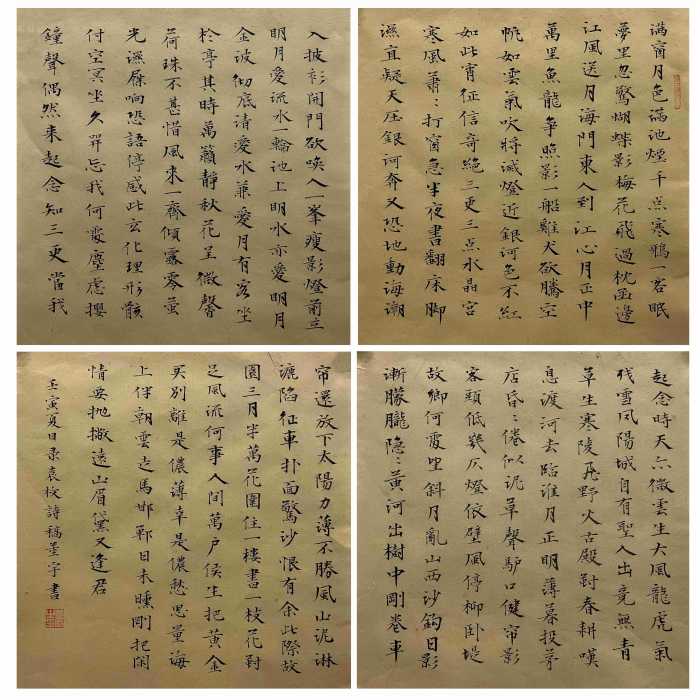 滿窗月色滿池煙千点寒鴉一茗眠
夢里忽驚蝴蝶影梅花飛過枕函邊
江風送月海門東人到江心月正中
萬里魚龍爭照影一船雞犬欲騰空
帆如雲氣吹將滅燈近銀河色不紅
如此宵征信奇絕三更三点水晶宮
寒風蕭〻打窗急半夜書翻床脚
濕直疑天压銀河奔又恐地動海潮
入披衫開門欲喚人一峯瘦影燈前立
明月愛流水一輪池上明水亦愛明月
金波徹底清愛水兼愛月有客坐
於亭其時萬籟靜秋花呈微馨
荷珠不甚惜風來一齊傾露零螢
光濕屧响恐語停感此玄化理形骸
付空冥坐久羿忘我何處塵慮攖
鐘聲偶然來起念知三更當我
起念時天亦微雲生大風龍虎氣
残雪鳳陽城自有聖人出竟無青
草生寒陵飛野火古殿對春耕嘆
息渡河去臨淮月正明薄暮投茅
店昏〻倦似泥草聲驴口健帘影
客頭低幾仄燈依壁風停柳卧堤
故鄉何處望斜月亂山西沙鈎日影
漸朦朧隱〻黃河出樹中剛卷車
帘還放下太陽力薄不勝風山泥淋
漉陷征車扑面驚沙恨有余此際故
園三月半萬花圍住一楼書一枝花對
足風流何事人间萬户侯生把黃金
买别離是儂薄幸是儂愁思量海
上伴朝雲走馬邯鄲日未曛剛把閑
情要抛撇遠山眉黛又逢君
壬寅夏日录袁枚詩稿墨宇書